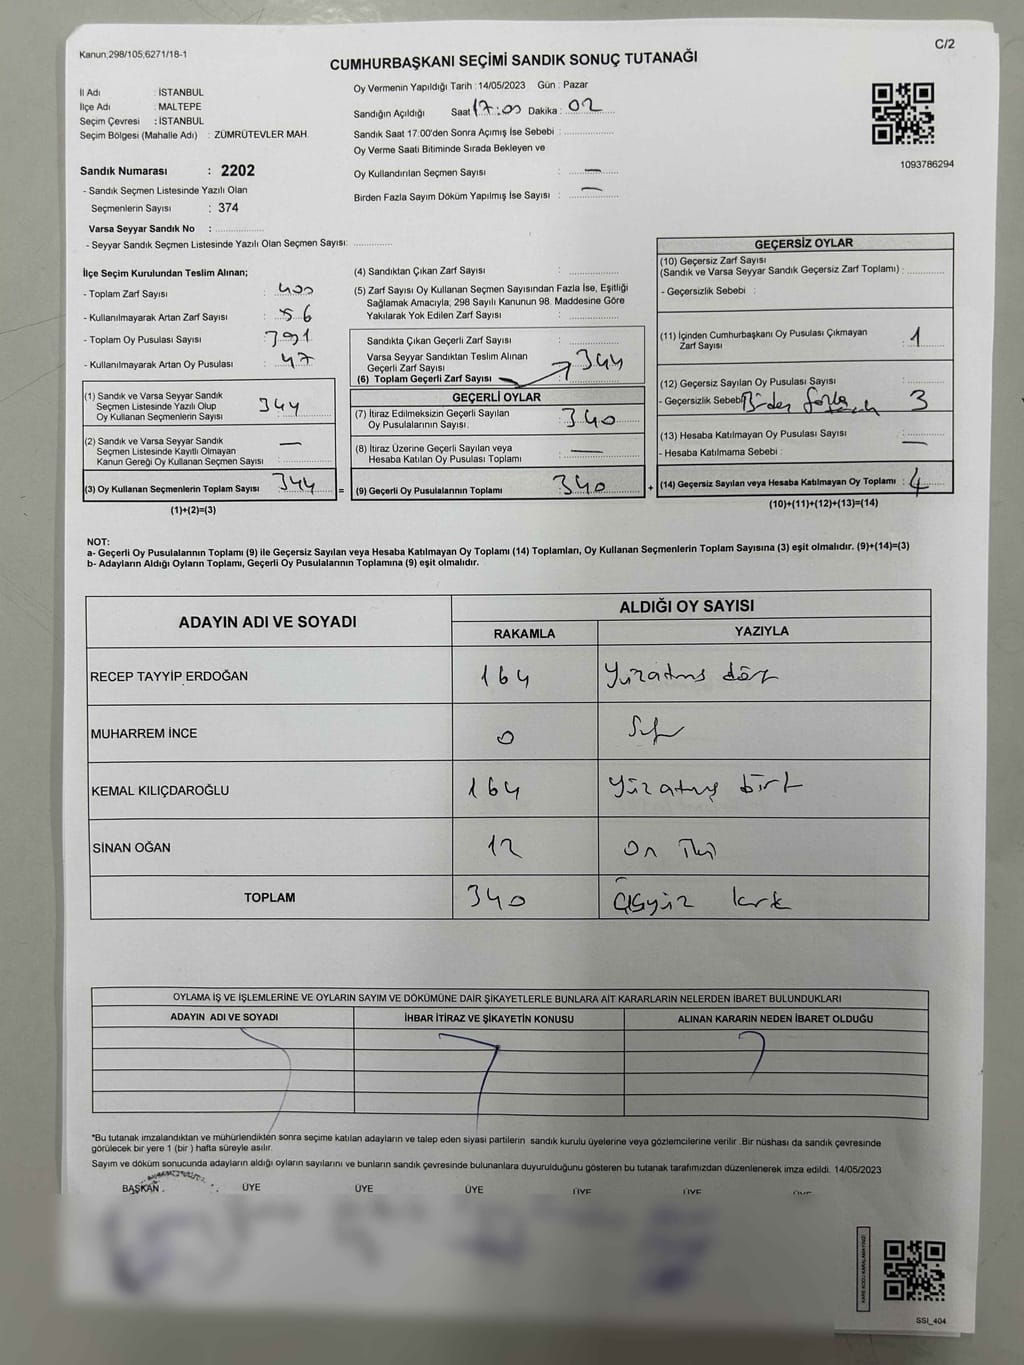 Kanun;298/105;6271/18-1
C/2
CUMHURBAŞKANI SEÇİMİ SANDIK SONUÇ TUTANAĞI
İl Adı : İSTANBUL
İlçe Adı : MALTEPE
Seçim Çevresi : İSTANBUL
Seçim Bölgesi (Mahalle Adı) : ZÜMRÜTEVLER MAH.
Oy Vermenin Yapıldığı Tarih : 14/05/2023 Gün : Pazar
Sandığın Açıldığı Saat 17:00 Dakika : 02
Sandık Saat 17:00'den Sonra Açımış İse Sebebi :
Oy Verme Saati Bitiminde Sırada Bekleyen ve
Oy Kullandırılan Seçmen Sayısı : —
Birden Fazla Sayım Döküm Yapılmış İse Sayısı : —
1093786294
Sandık Numarası : 2202
- Sandık Seçmen Listesinde Yazılı Olan
Seçmenlerin Sayısı : 374
Varsa Seyyar Sandık No :
- Seyyar Sandık Seçmen Listesinde Yazılı Olan Seçmen Sayısı:
İlçe Seçim Kurulundan Teslim Alınan;
- Toplam Zarf Sayısı : 400
- Kullanılmayarak Artan Zarf Sayısı : 56
- Toplam Oy Pusulası Sayısı : 391
- Kullanılmayarak Artan Oy Pusulası : 47
(1) Sandık ve Varsa Seyyar Sandık
Seçmen Listesinde Yazılı Olup
Oy Kullanan Seçmenlerin Sayısı 344
(2) Sandık ve Varsa Seyyar Sandık
Seçmen Listesinde Kayıtlı Olmayan
Kanun Gereği Oy Kullanan Seçmen Sayısı : —
(3) Oy Kullanan Seçmenlerin Toplam Sayısı : 344
(1)+(2)=(3)
(4) Sandıktan Çıkan Zarf Sayısı :
(5) Zarf Sayısı Oy Kullanan Seçmen Sayısından Fazla İse, Eşitliği
Sağlamak Amacıyla, 298 Sayılı Kanunun 98. Maddesine Göre
Yakılarak Yok Edilen Zarf Sayısı :
Sandıkta Çıkan Geçerli Zarf Sayısı :
Varsa Seyyar Sandıktan Teslim Alınan
Geçerli Zarf Sayısı :
(6) Toplam Geçerli Zarf Sayısı : 344
GEÇERLİ OYLAR
(7) İtiraz Edilmeksizin Geçerli Sayılan
Oy Pusulalarının Sayısı : 340
(8) İtiraz Üzerine Geçerli Sayılan veya
Hesaba Katılan Oy Pusulası Toplamı : —
= (9) Geçerli Oy Pusulalarının Toplamı : 340
GEÇERSİZ OYLAR
(10) Geçersiz Zarf Sayısı
(Sandık ve Varsa Seyyar Sandık Geçersiz Zarf Toplamı) :
- Geçersizlik Sebebi :
(11) İçinden Cumhurbaşkanı Oy Pusulası Çıkmayan
Zarf Sayısı : 1
(12) Geçersiz Sayılan Oy Pusulası Sayısı :
- Geçersizlik Sebebi Birden fazla 3
(13) Hesaba Katılmayan Oy Pusulası Sayısı : —
- Hesaba Katılmama Sebebi :
+ (14) Geçersiz Sayılan veya Hesaba Katılmayan Oy Toplamı : 4
(10)+(11)+(12)+(13)=(14)
NOT:
a- Geçerli Oy Pusulalarının Toplamı (9) ile Geçersiz Sayılan veya Hesaba Katılmayan Oy Toplamı (14) Toplamları, Oy Kullanan Seçmenlerin Toplam Sayısına (3) eşit olmalıdır. (9)+(14)=(3)
b- Adayların Aldığı Oyların Toplamı, Geçerli Oy Pusulalarının Toplamına (9) eşit olmalıdır.
ADAYIN ADI VE SOYADI
ALDIĞI OY SAYISI
RAKAMLA YAZIYLA
RECEP TAYYİP ERDOĞAN 164 Yüzatmış dört
MUHARREM İNCE 0 Sıfır
KEMAL KILIÇDAROĞLU 164 Yüzatmış dört
SİNAN OĞAN 12 On iki
TOPLAM 340 Üçyüz kırk
OYLAMA İŞ VE İŞLEMLERİNE VE OYLARIN SAYIM VE DÖKÜMÜNE DAİR ŞİKAYETLERLE BUNLARA AİT KARARLARIN NELERDEN İBARET BULUNDUKLARI
ADAYIN ADI VE SOYADI İHBAR İTİRAZ VE ŞİKAYETİN KONUSU ALINAN KARARIN NEDEN İBARET OLDUĞU
*Bu tutanak imzalandıktan ve mühürlendikten sonra seçime katılan adayların ve talep eden siyasi partilerin sandık kurulu üyelerine veya gözlemcilerine verilir .Bir nüshası da sandık çevresinde
görülecek bir yere 1 (bir ) hafta süreyle asılır.
Sayım ve döküm sonucunda adayların aldığı oyların sayılarını ve bunların sandık çevresinde bulunanlara duyurulduğunu gösteren bu tutanak tarafımızdan düzenlenerek imza edildi. 14/05/2023
BAŞKAN ÜYE ÜYE ÜYE ÜYE ÜYE ÜYE
KARE KODU KARALAMAYINIZ!
SSI_404